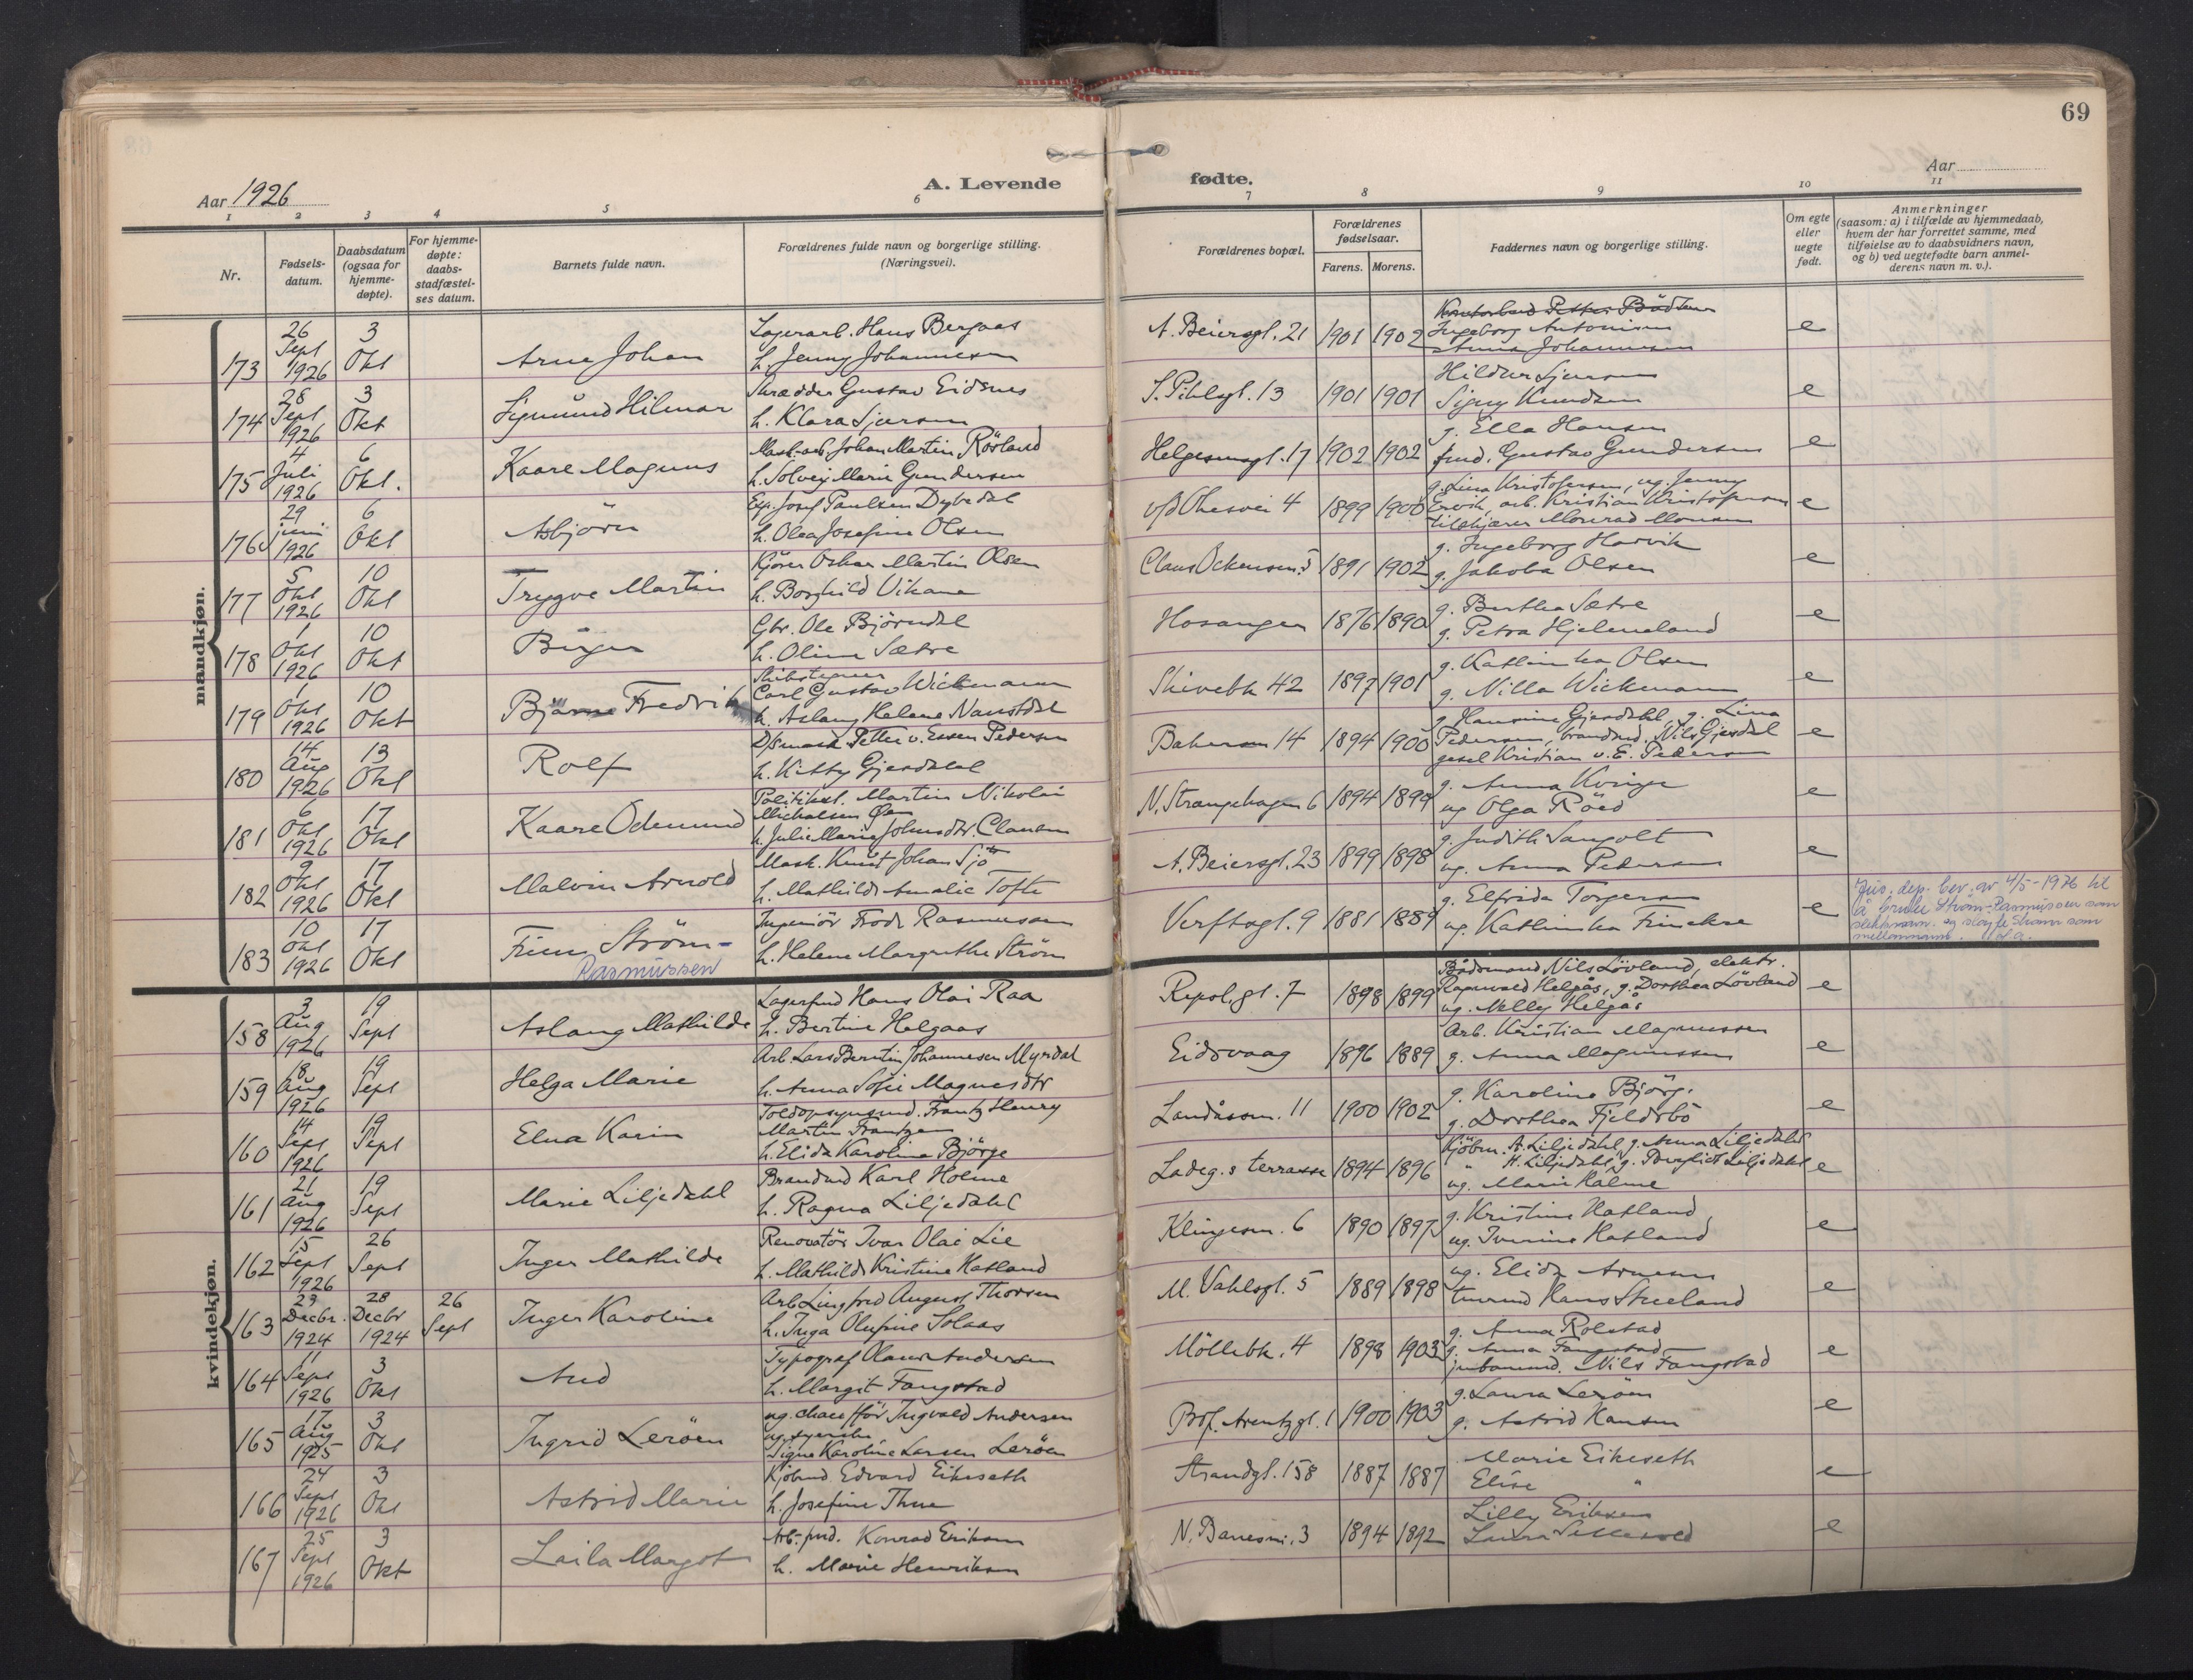 69
Aar 1926
A. Levende
fødte.
Aar
1 2 3 4 5 6 7 8 9 10 11
Nr.
Fødsels-
datum.
Daabsdatum
(ogsaa for
hjemme-
døpte).
For hjemme-
døpte:
daabs-
stadfæstel-
ses datum.
Barnets fulde navn.
Forældrenes fulde navn og borgerlige stilling.
(Næringsvei).
Forældrenes bopæl.
Forældrenes
fødselsaar.
Farens. Morens.
Faddernes navn og borgerlige stilling.
Om egte
eller
uegte
født.
Anmerkninger
(saasom: a) i tilfælde av hjemmedaab,
hvem der har forrettet samme, med
tilføielse av to daabsvidners navn,
og b) ved uegtefødte barn anmel-
derens navn m. v.).
mandkjøn.
173 26 Sept 1926 3 Okt Arne Johan
Lagerarb. Hans Bergaas
h. Jenny Johannesen
A. Beiersgt. 21 1901 1902
Ingeborg Antonisen
Anna Johannesen
e
174 28 Sept 1926 3 Okt Sigmund Hilmar
Skrædder Gustav Eidsnes
h. Klara Sjursen
S. Pihlsgt. 13 1901 1901
Hildur Sjursen
Signy Knudsen
e
175 4 Juli 1926 6 Okt. Kaare Magnus
Mask.arb. Johan Martin Rörland
h. Solveig Marie Gundersen
Helgesensgt. 17 1902 1902
g. Ella Hansen
Gustav Gundersen
e
176 29 juni 1926 6 Okt Asbjörn
Exp. Josef Paulsen Dybedal
h. Olea Josefine Olsen
4 1899 1900
g. Lina Kristofersen, ug. Jenny
arb. Kristian Kristofersen
Monsen
e
177 5 Okt 1926 10 Okt Trygve Martin
Kjörer Oskar Martin Olsen
h. Borghild Vikane
Claus Ockensensg. 5 1891 1902
g. Ingeborg Harvik
g. Jakoba Olsen
e
178 1 Okt 1926 10 Okt Birger
Gbr. Ole Björndal
h. Oline Sætre
Hosanger 1876 1890
g. Berthea Sætre
g. Petra Hjelmeland
e
179 1 Okt 1926 10 Okt Bjarne Fredrik
Carl Gustav Wickmann
h. Aslaug Helene Naustdal
Skivebk 42 1897 1901
g. Kathinka Olsen
g. Nilla Wickmann
e
180 14 Aug 1926 13 Okt Rolf
D/Smask Petter v. Essen Pedersen
h. Kitty Gjesdahl
Bakersm 14 1894 1900
g. Hansine Gjesdahl, g. Lina
Pedersen, brandmd. Nils Gjesdal
gesel Kristian v. E. Pedersen
e
181 6 Okt 1926 17 Okt Kaare Odmund
Politikst. Martin Nikolai
Michalsen Øen
h. Julie Marie Johnsdtr. Clausen
N. Strangehagen 6 1894 1899
g. Anna Kvinge
ug Olga Röed
e
182 9 Okt 1926 17 Okt Malvin Arnold
Mask. Knut Johan Sjö
h. Mathilde Amalie Tofte
A. Beiersgt. 23 1899 1898
g. Judith Sangolt
ug. Anna Pedersen
e
183 10 Okt 1926 17 Okt Finn Ström-
Rasmussen
Ingeniör Frode Rasmussen
h. Helene Margrethe Ström
Verftsgt. 9 1881 1889
g. Elfrida Torgersen
ug. Kathinka Fincke
e
Jus. dep. bev. av 4/5-1926 til
å bruke Strøm-Rasmussen som
slektsnavn og sløyfe Strøm som
mellomnavn.
kvindekjøn.
158 3 Aug 1926 19 Sept Aslaug Mathilde
Lagerfmd Hans Olai Raa
h. Bertine Helgaas
Repsl.gt. 7 1898 1899
Bådsmand Nils Lövland, elektr.
Ragnvald Helgås, g. Dorthea Lövland
ug. Nelly Helgås
e
159 18 Aug 1926 19 Sept Helga Marie
Arb. Lars Berntin Johannesen Myrdal
h. Anna Sofie Magnesdtr
Eidsvaag 1896 1889
Arb. Kristian Magnussen
g. Anna Magnussen
e
160 14 Sept 1926 19 Sept Elna Karin
Toldopsynsmd. Frantz Henry
Martin Frantzen
h. Elida Karoline Björge
Landåsen. 11 1900 1902
g. Karoline Björg.
g. Dorthea Fjeldsbö
e
161 21 Aug 1926 19 Sept Marie Liljedahl
Brandmd Karl Holme
h. Ragna Liljedahl
Ladeg.s terrasse 1894 1896
Kjöbm. A. Liljedahl, g. Anna Liljedahl
" H. Liljedahl, g. Liljedahl
ug. Marie Halme
e
162 15 Sept 1926 26 Sept Inger Mathilde
Renovatör Ivar Olai Lie
h. Mathilde Kristine Hatland
Klingesm. 6 1890 1897
g. Kristine Hatland
ug. Iverine Hatland
e
163 23 Decbr. 1924 28 Decbr 1924 26 Sept Inger Karoline
Arb. Lingfred August Thorsen
h. Inga Olufine Solaas
M. Vahlsgt. 5 1889 1898
ug. Elida Arnesen
Hans Strceland
e
164 11 Sept 1926 3 Okt Aud
Typograf Olaus Andersen
h. Margit Fangstad
Möllebk. 4 1898 1903
g. Anna Rolstad
g. Anna Fangstad
Nils Fangstad
e
165 17 Aug 1925 3 Okt Ingrid Leröen
ug. chaufför Ingvald Andersen
ug. syerske
Signe Karoline Larsen Leröen
Prof. Arentzgt. 1 1900 1903
g. Laura Leröen
g. Astrid Hansen
e
166 24 Sept 1926 3 Okt Astrid Marie
Kjöbmd Edvard Eikeseth
h. Josefine Thue
Strandgt. 158 1887 1887
Marie Eikeseth
Elise "
e
167 25 Sept 1926 3 Okt Laila Margot
Konrad Eriksen
h. Marie Henriksen
3 1894 1892
Lilly Eriksen
Laura
e